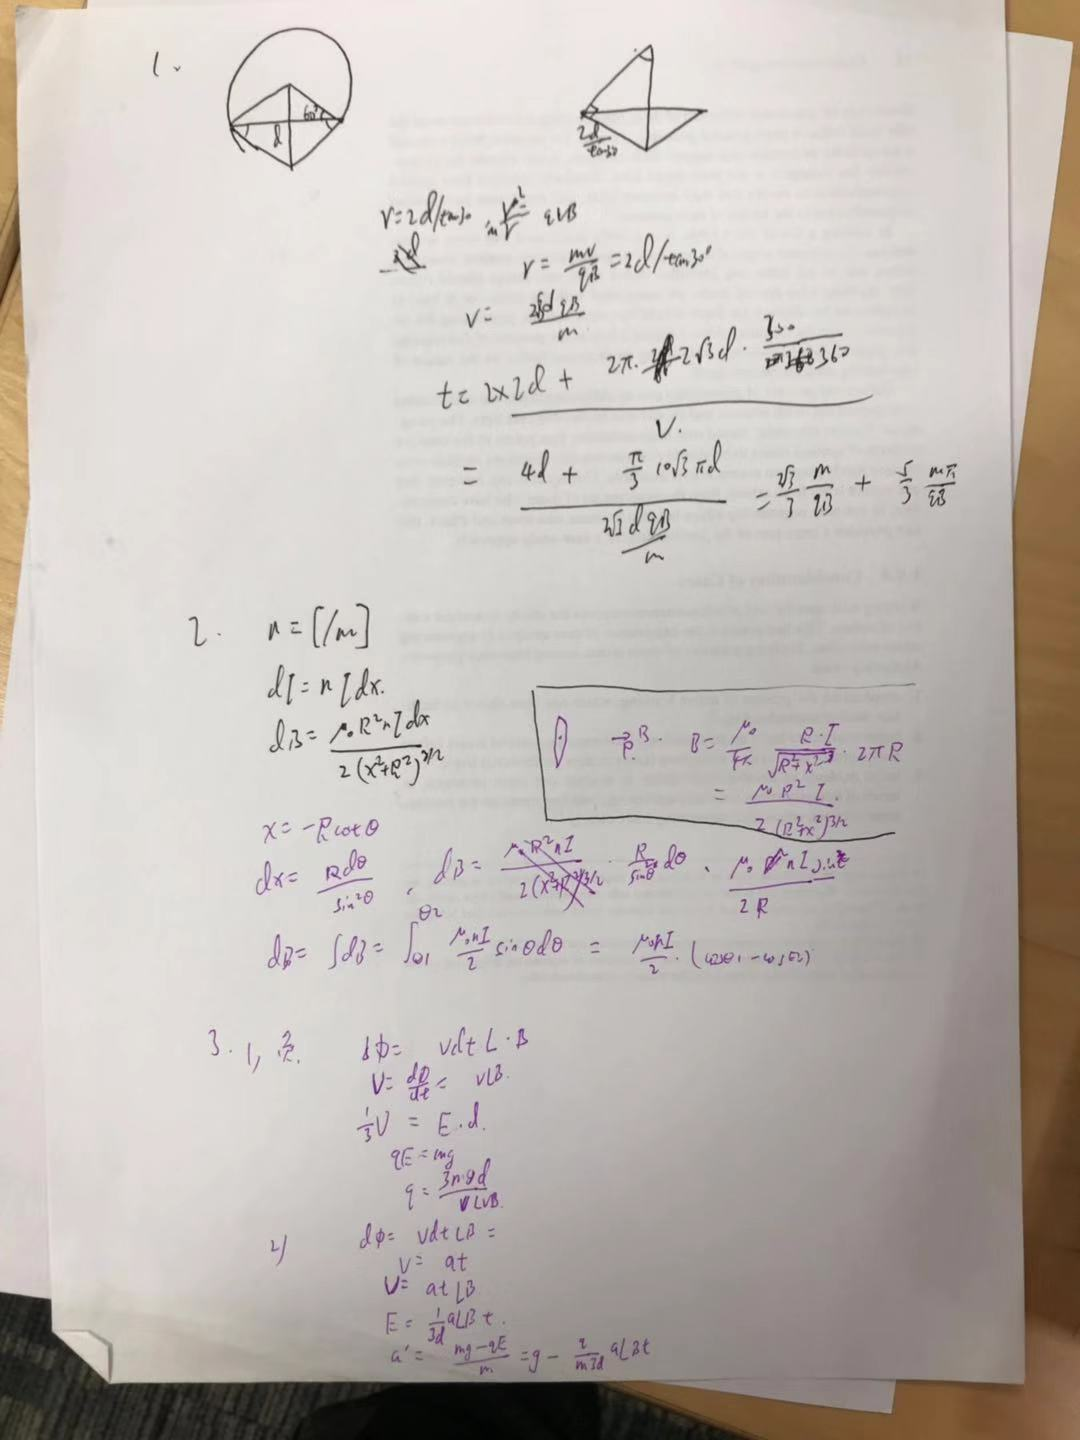 1.
60°
d
2d/tan30
r=2d/tan30 , m v²/r qvB
r= mv/qB =2d/tan30°
v= 2√3dqB/m
t= (2×2d + 2π· 2√3d · 300/360)/v.
= (4d + 10√3πd)/(2√3dqB/m) = 2√3/3 m/qB + 5/3 mπ/qB
2. n=[/m]
dI= nIdx.
dB= μ₀R²nIdx/2(x²+R²)^3/2
B. B= μ₀/4π R·I/√R²+x² · 2πR
= μ₀R²I./2(R²+x²)^3/2
x= -Rcotθ
dx= Rdθ/sin²θ , dB= μ₀R²nI/2(x²+R²)^3/2 · R/sin²θ dθ .
dB= ∫dB= ∫θ1^θ2 μ₀nI/2 sinθdθ = μ₀nI/2 · (cosθ1-cosθ2)
3. 1,
dΦ= vdtL·B
V= dΦ/dt = vLB.
1/3 U = E.d.
qE=mg
q= 3mgd/vLB.
2) dφ= vdtLB=
v= at
U= atLB
E= 1/3d aLBt.
a'= mg-qE/m =g- q/m3d aLBt